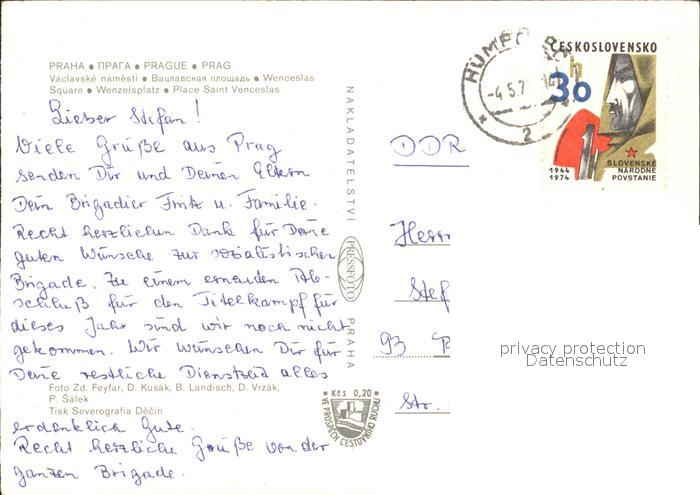 PRAHA ● ПРАГА ● PRAGUE ● PRAG
Václavské náměstí ● Вацлавская площадь ● Wenceslas
Square ● Wenzelsplatz ● Place Saint Venceslas
Lieber Stefan!
Viele Grüße aus Prag
senden Dir und Deinen Eltern
Dein Brigadier Fritz u. Familie.
Recht herzlichen Dank für Deine
guten Wünsche zur sozialistischen
Brigade. Zu einem erneuten Ab-
schluß für den Titelkampf für
dieses Jahr sind wir noch nicht
gekommen. Wir wünschen Dir für
Deine restliche Dienstzeit alles
Foto Zd. Feyfar, D. Kusák, B. Landisch, D. Vrzák,
P. Šálek
Tisk Severografia Děčín
erdenklich Gute.
Recht herzliche Grüße von der
ganzen Brigade.
NAKLADATELSTVÍ
PRESSFOTO
PRAHA
Kčs 0,20
VE PROSPĚCH CESTOVNÍHO RUCHU
HUMPO
-4.5.7
2
ČESKOSLOVENSKO
30 h
SLOVENSKÉ
NÁRODNÉ
POVSTANIE
1944
1974
DDR
Herrn
Stef
93
Str.
privacy protection
Datenschutz